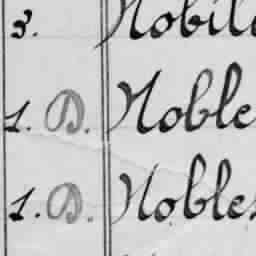 3. Nobile
1. D. Noble
1. D. Nobles